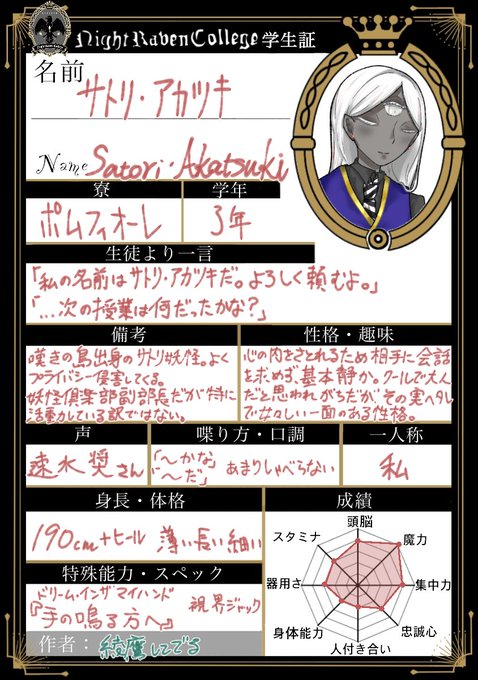 Night Raven College 学生証
名前
サトリ・アカツキ
Name Satori・Akatsuki
寮
学年
ポムフィオーレ
3年
生徒より一言
「私の名前はサトリ・アカツキだ。よろしく頼むよ。」
「…次の授業は何だったかな？」
備考
嘆きの島出身のサトリ妖怪。よく
プライバシー侵害してくる。
妖怪倶楽部副部長だが特に
活動している訳ではない。
性格・趣味
心の内をさとれるため相手に会話
を求めず、基本静か。クールで大人
だと思われがちだが、その実ヘタレ
で女々しい一面のある性格。
声
喋り方・口調
一人称
速水奨さん
「〜かな」
「〜だ」
あまりしゃべらない
私
身長・体格
190cm+ヒール 薄い長い細い
特殊能力・スペック
ドリーム・インザマイハンド
『手の鳴る方へ』
視界ジャック
作者：
成績
頭脳
魔力
集中力
忠誠心
人付き合い
身体能力
器用さ
スタミナ